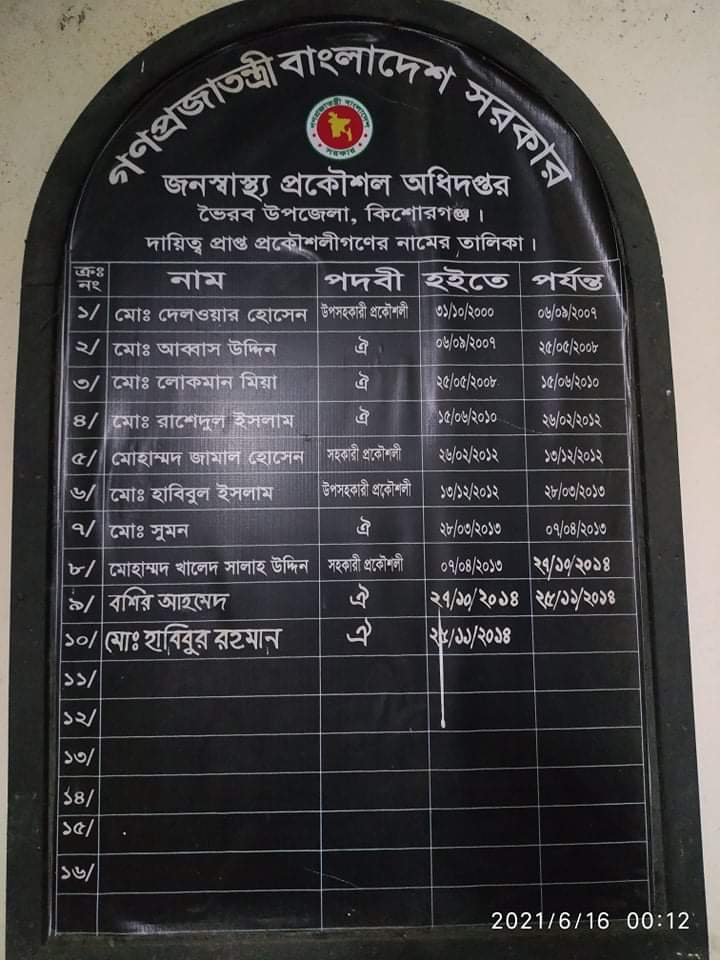 গণপ্রজাতন্ত্রী বাংলাদেশ সরকার
গণপ্রজাতন্ত্রী বাংলাদেশ
সরকার
জনস্বাস্থ্য প্রকৌশল অধিদপ্তর
ভৈরব উপজেলা, কিশোরগঞ্জ।
দায়িত্ব প্রাপ্ত প্রকৌশলীগণের নামের তালিকা।
ক্রঃ নং নাম পদবী হইতে পর্যন্ত
১/ মোঃ দেলওয়ার হোসেন উপসহকারী প্রকৌশলী ৩১/১০/২০০০ ০৬/০৯/২০০৭
২/ মোঃ আব্বাস উদ্দিন ঐ ০৬/০৯/২০০৭ ২৫/০৫/২০০৮
৩/ মোঃ লোকমান মিয়া ঐ ২৫/০৫/২০০৮ ১৫/০৬/২০১০
৪/ মোঃ রাশেদুল ইসলাম ঐ ১৫/০৬/২০১০ ২৬/০২/২০১২
৫/ মোহাম্মদ জামাল হোসেন সহকারী প্রকৌশলী ২৬/০২/২০১২ ১৩/১২/২০১২
৬/ মোঃ হাবিবুল ইসলাম উপসহকারী প্রকৌশলী ১৩/১২/২০১২ ২৮/০৩/২০১৩
৭/ মোঃ সুমন ঐ ২৮/০৩/২০১৩ ০৭/০৪/২০১৩
৮/ মোহাম্মদ খালেদ সালাহ উদ্দিন সহকারী প্রকৌশলী ০৭/০৪/২০১৩ ২৭/১০/২০১৪
৯/ বশির আহমেদ ঐ ২৭/১০/২০১৪ ২৫/১১/২০১৪
১০/ মোঃ হাবিবুর রহমান ঐ ২৫/১১/২০১৪
১১/
১২/
১৩/
১৪/
১৫/
১৬/
2021/6/16 00:12